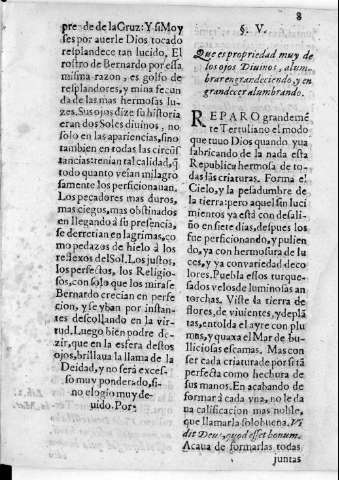 8
prende de la Cruz: Y si Moy
ses por auerle Dios tocado
resplandece tan lucido, El
rostro de Bernardo por essa
misma razon, es golfo de
resplandores, y mina fecun
da de las mas hermosas lu-
zes. Sus ojos dize su historia
eran dos Soles diuinos, no
solo en las apariencias, sino
tambien en todas las circūs
tancias: tenian tal calidad, q̃
todo quanto veían milagro
samente los perficionauan.
Los pecadores mas duros,
mas ciegos, mas obstinados
en llegando à su presencia,
se derretian en lagrimas, co
mo pedazos de hielo à los
reflexos del Sol. Los justos,
los perfectos, los Religio-
sos, con solo que los mirase
Bernardo crecian en perfe
cion, y se yban por instan-
tes descollando en la vir-
tud. Luego bien podre de-
zir, que en la esfera destos
ojos, brillaua la llama de la
Deidad, y no serà exces-
so muy ponderado, si-
no elogio muy de-
uido. Por-
§. V.
Que es propriedad muy de
los ojos Diuinos, alum-
brar engrandeciendo, y en
grandecer alumbrando.
REPARO grandemē-
te Tertuliano el modo
que tuuo Dios quando yua
fabricando de la nada esta
Republica hermosa de to-
das las criaturas. Forma el
Cielo, y la pesadumbre de
la tierra: pero aquel sin luci
mientos ya està con desali-
ño en siete dias, despues los
fue perficionando, y pulien
do, ya con hermosura de lu
ces, y ya con variedad de co
lores. Puebla essos turque-
sados velos de luminosas an
torchas. Viste la tierra de
flores, de viuientes, y de plā
tas, entolda el ayre con plu
mas, y quaxa el Mar de bu-
lliciosas escamas. Mas con
ser cada criatura de por si tā
perfecta como hechura de
sus manos. En acabando de
formar à cada vna, no le da
na calificacion mas noble,
que llamarla solo buena. Vi
dit Deus, quod esset bonum.
Acaua de formarlas todas
juntas